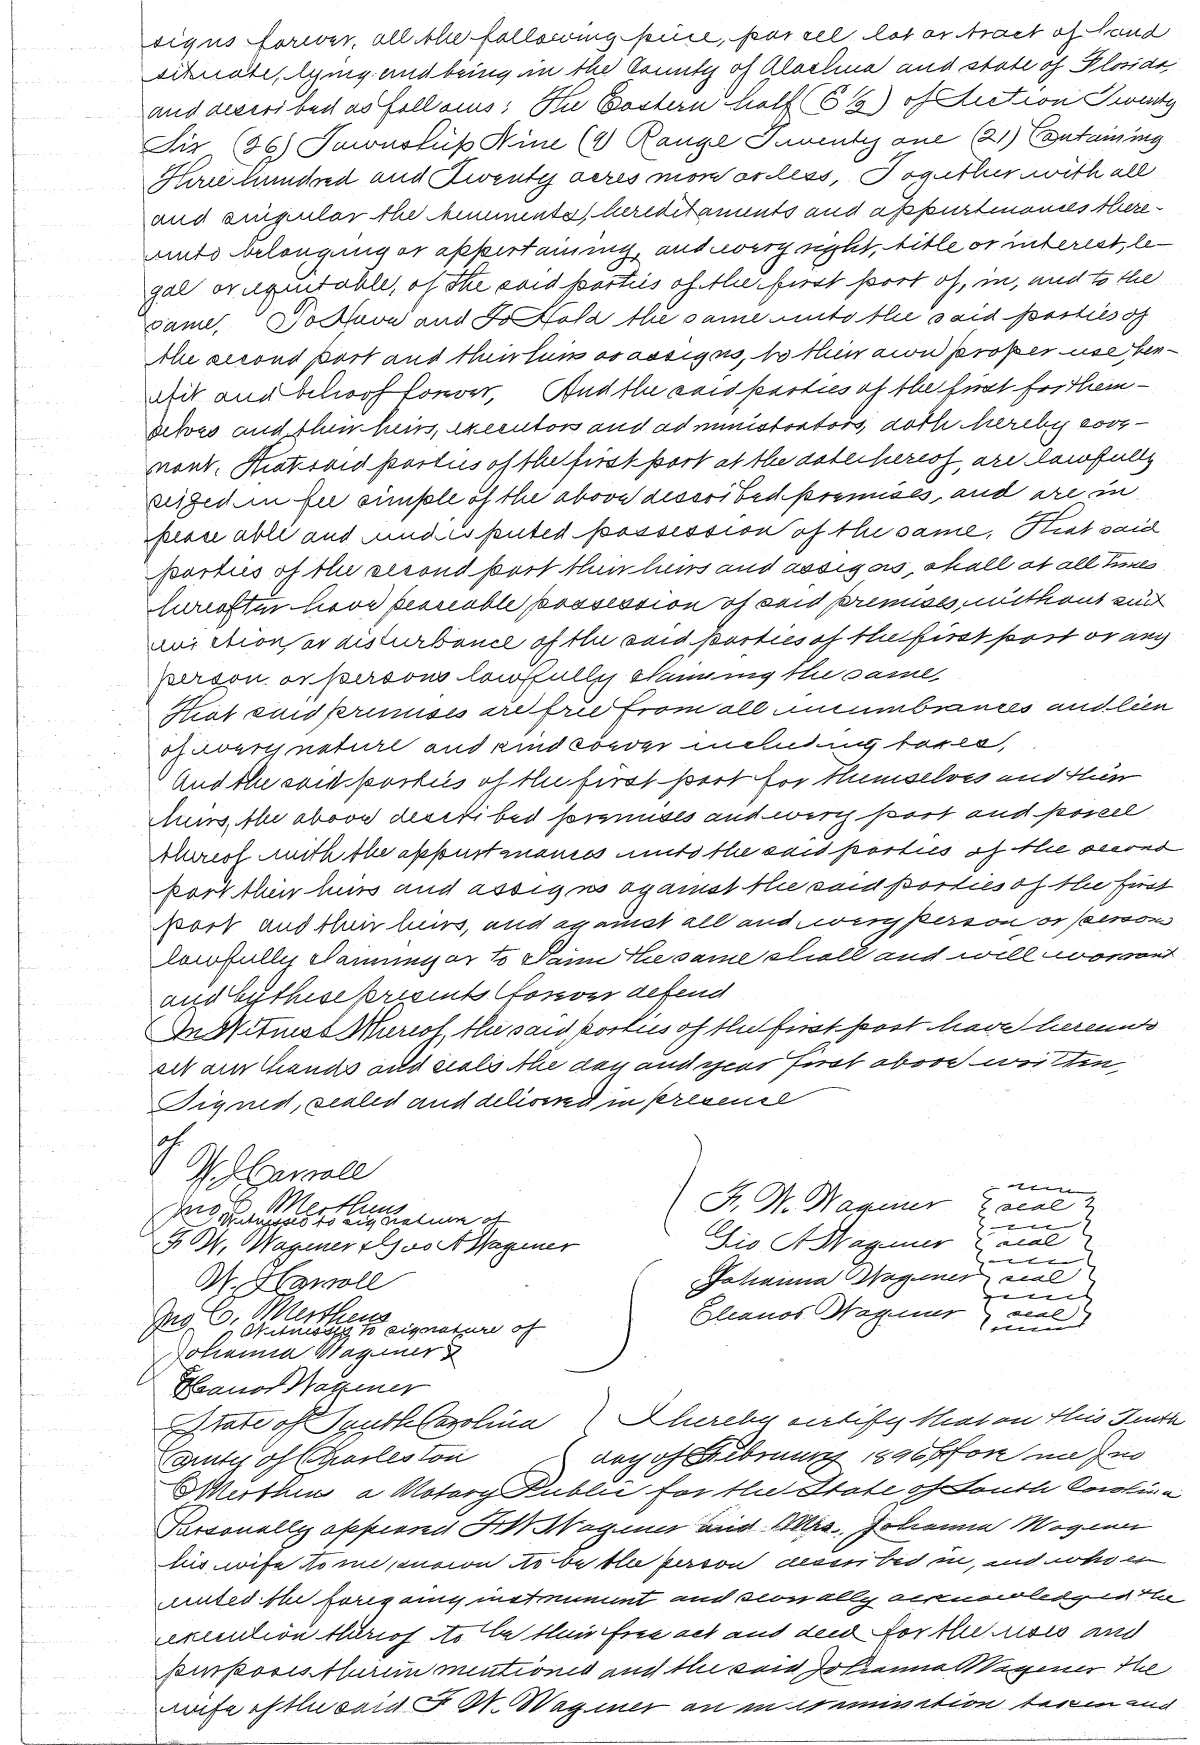 signs forever, all the following piece, parcell lot or tract of land
situate, lying and being in the County of Alachua and state of Florida,
and described as follows: The Eastern half (E ½) of Section Twenty
Six (26) Township Nine (9) Range Twenty one (21) Containing
Three hundred and Twenty acres more or less, Together with all
and singular the tenements, hereditaments and appurtenances there-
unto belonging or appertaining, and every right, title or interest, le-
gal or equitable, of the said parties of the first part of, in, and to the
same, To Have and To Hold the same unto the said parties of
the second part and their heirs or assigns, to their own proper use, ben-
efit and behoof forever, And the said parties of the first for them-
selves and their heirs, executors and administrators, doth hereby cove-
nant. That said parties of the first part at the date hereof, are lawfully
seized in fee simple of the above described premises, and are in
peaceable and undisputed possession of the same. That said
parties of the second part their heirs and assigns, shall at all times
hereafter have peaceable possession of said premises, without suit
eviction, or disturbance of the said parties of the first part or any
person or persons lawfully claiming the same,
That said premises are free from all incumbrances and lien
of every nature and kind soever including taxes,
And the said parties of the first part for themselves and their
heirs, the above described premises and every part and parcel
thereof with the appurtenances unto the said parties of the second
part their heirs and assigns against the said parties of the first
part and their heirs, and against all and every person or persons
lawfully claiming or to claim the same shall and will warrant
and by these presents forever defend
In Witness Whereof, the said parties of the first part have hereunto
set our hands and seals the day and year first above written,
Signed, sealed and delivered in presence
of
W. J. Carroll
Jno C. Merthens
Witnesses to signature of
F. W. Wagener & Geo A Wagener
W. J. Carroll
Jno C. Merthens
Witnesses to signature of
Johanna Wagener &
Eleanor Wagener
F. W. Wagener seal
Geo A Wagener seal
Johanna Wagener seal
Eleanor Wagener seal
State of South Carolina I hereby certify that on this Tenth
County of Charleston day of February 1896 before me Jno
C Merthens a Notary Public for the State of South Carolina
Personally appeared F. W. Wagener and Mrs. Johanna Wagener
his wife to me known to be the person described in, and who ex
ecuted the foregoing instrument and severally acknowledged the
execution thereof to be their free act and deed for the uses and
purposes therein mentioned and the said Johanna Wagener the
wife of the said F. W. Wagener on an examination taken and